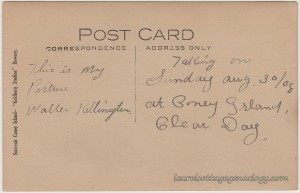 POST CARD
CORRESPONDENCE
ADDRESS ONLY
Souvenir Coney Island
Bowery.
This is My
Picture
Walter Kellington
Taking on
Sunday Aug 30/08
at Coney Island,
Clear Day.